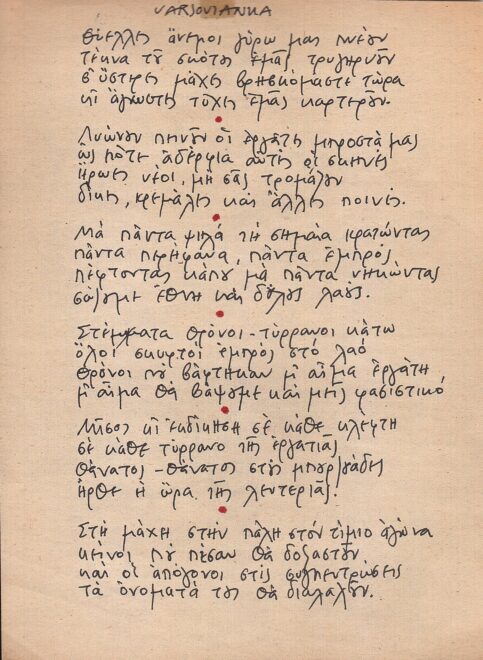 VARSOVIANKA
Θύελλες ἄνεμοι γύρω μας πνέουν
τέκνα τοῦ σκότους ἐμᾶς τρυγυρνοῦν
σ' ὕστερες μάχες βρησκόμαστε τώρα
κι ἄγνωστες τύχες ἐμᾶς καρτεροῦν.
Λυώνουν πεινοῦν οἱ ἐργάτες μπροστά μας
ὣς πότε ἀδέρφια αὐτές οἱ σκηνές
ἥρωες νέοι, μή σᾶς τρομάζουν
δίκες, κρεμάλες και ἄλλες ποινές.
Μά πάντα ψηλά τή σημαία κρατώντας
πάντα περήφανα, πάντα ἐμπρός
πέφτοντας κάπου μά πάντα νικώντας
σώζουμε ἔθνη καί δούλους λαούς.
Στέμματα θρόνοι - τύρρανοι κάτω
ὅλοι σκυφτοί ἐμπρός στό λαό
θρόνοι πού βάφτηκαν μ' αἷμα ἐργάτη
μ' αἷμα θά βάψουμε καί μεῖς φασιστικό
Μῖσος κι ἐκδίκηση σέ κάθε κλέφτη
σέ κάθε τύρρανο τῆς ἐργατιᾶς
θάνατος - θάνατος στούς μπουρζουάδες
ἦρθε ἡ ὥρα τῆς λευτεριᾶς.
Στή μάχη στήν πάλη στόν τίμιο ἀγώνα
κεῖνοι πού πέσαν θά δοξαστοῦν
καί οἱ ἀπόγονοι στίς συγκεντρώσεις
τά ὀνοματά τους θά διαλαλοῦν.